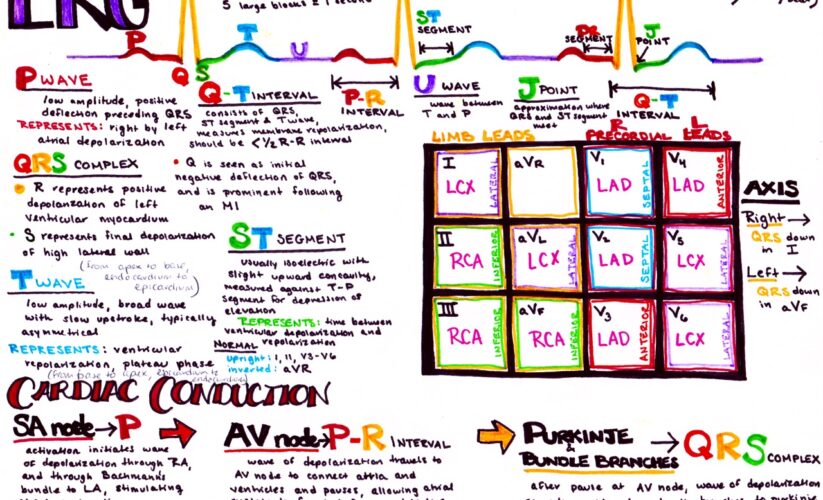 EKG
5 large blocks = 1 second
P
Q
S
T
U
ST
SEGMENT
PR
SEGMENT
J
POINT
P-R
INTERVAL
Q-T
INTERVAL
P WAVE
low amplitude, positive
deflection preceding QRS
REPRESENTS: right by left
atrial depolarization
Q-T INTERVAL
consists of QRS,
ST segment & T wave,
measures membrane repolarization,
should be < 1/2 R-R interval
U WAVE
wave between
T and P
J POINT
approximation where
QRS and ST segment
meet
QRS COMPLEX
R represents positive
depolarization of left
ventricular myocardium
S represents final depolarization
of high lateral wall
(from apex to base,
endocardium to
epicardium)
Q is seen as initial
negative deflection of QRS,
and is prominent following
an MI
T WAVE
low amplitude, broad wave
with slow upstroke, typically
asymmetrical
REPRESENTS: ventricular
repolarization, plateau phase
(from base to apex, epicardium to
endocardium)
ST SEGMENT
Usually isoelectric with
slight upward concavity,
measured against T-P
segment for depression or
elevation
REPRESENTS: time between
ventricular depolarization and
repolarization
NORMAL
upright: I, II, V3-V6
inverted: aVR
LIMB LEADS
R L
PRECORDIAL LEADS
I
LCX
LATERAL
aVR
V1
LAD
SEPTAL
V4
LAD
ANTERIOR
II
RCA
INFERIOR
aVL
LCX
LATERAL
V2
LAD
SEPTAL
V5
LCX
LATERAL
III
RCA
INFERIOR
aVF
RCA
INFERIOR
V3
LAD
ANTERIOR
V6
LCX
LATERAL
AXIS
Right →
QRS down
in I
Left →
QRS down
in aVF
CARDIAC CONDUCTION
SA node → P
activation initiates wave
of depolarization through RA,
and through Bachmann's
bundle to LA, stimulating
AV node → P-R INTERVAL
wave of depolarization travels to
AV node to connect atria and
ventricles and pauses, allowing atrial
PURKINJE
&
BUNDLE BRANCHES → QRS COMPLEX
after pause at AV node, wave of depolarization